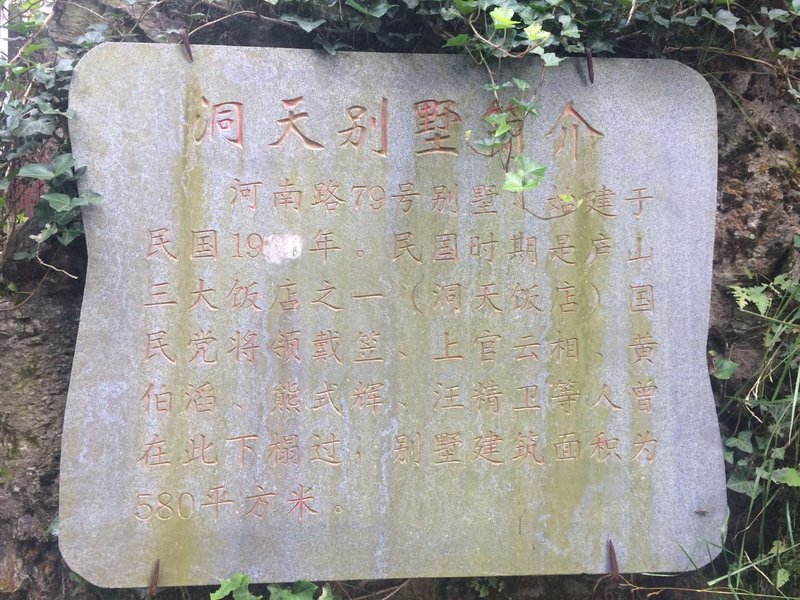 洞天别墅简介
河南路79号别墅,始建于
民国19 年。民国时期是庐山
三大饭店之一(洞天饭店)国
民党将领戴笠、上官云相、黄
伯滔、熊式辉、汪精卫等人曾
在此下榻过,别墅建筑面积为
580平方米。